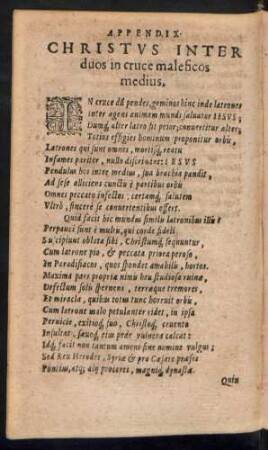 APPENDIX.
CHRISTVS INTER
duos in cruce maleficos
medius.
IN cruce dū pendet, geminos hinc inde latrones
inter agens animam mundi saluator IESVS;
Dumq́; alter latro fit peior; conuertitur alter;
Totius effigies hominum proponitur orbis,
Latrones qui sunt omnes, mortisq́; reatu
Infames pariter, nullo discrimine: IESVS
Pendulus hos inter medius, sua brachia pandit,
Ad sese alliciens cunctis è partibus orbis
Omnes peccato infectos; certamq́; salutem
Vltrò, sincerè se conuertentibus offert.
Quid facit hic mundus similis latronibus illis?
Perpauci sunt è multis, qui corde fideli
Suscipiunt oblata sibi, Christumq́; sequuntur,
Cum latrone pio, & peccata priora peroso,
In Paradisiacos, quos spondet amabilis, hortos.
Maxima pars propria nimis heu studiosa ruina,
Defectum solis spernens, terræque tremores
Et miracla, quibus totus tunc horruit orbis,
Cum latrone malo petulanter ridet, in ipsa
Pernicie, exitioq́; suo, Christoq́; cruento
Insultat, sæuoq́; etiam vulnera calcat:
Idq́; facit non tantum amens sine nomine vulgus;
Sed Rex Herodes, Syriæ & pro Cæsare præses
Pontius, atq; alij proceres, magniq́; dynastæ.
Quin